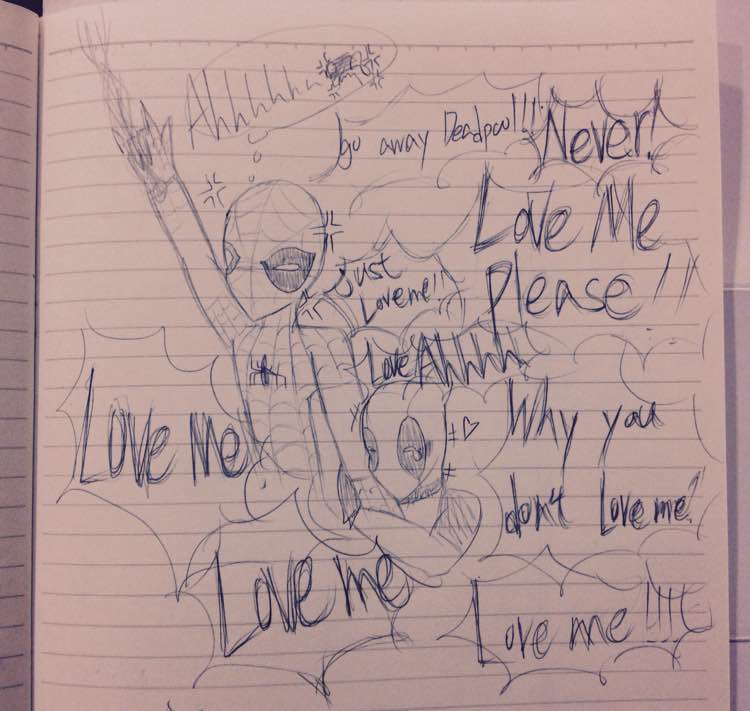 Ahhhhhh
go away Deadpool!!!
Never!
Love Me
Please!!!
Just
Love me!!
Love Ahhhh
Love me
Why you
don't Love me?
Love me
Love me!!!!